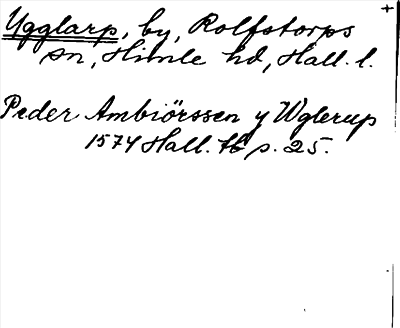 +
Ygglarp, by, Rolfstorps
sn, Himle hd, Hall. l.
Peder Ambiörssen y Wglerup
1574 Hall. tb p. 25.